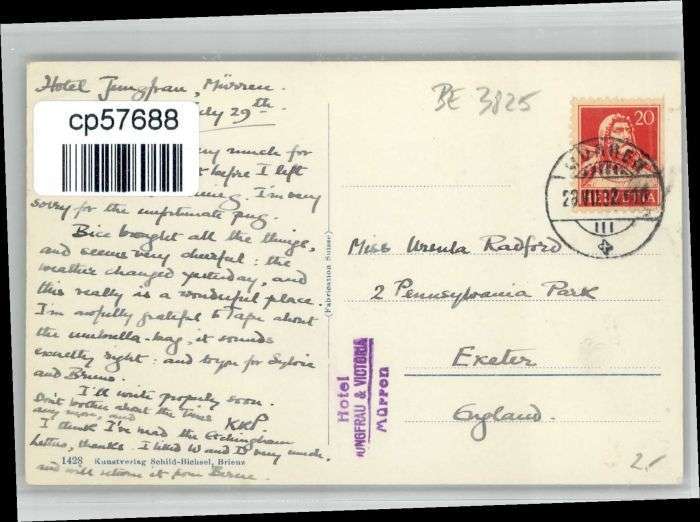 Hotel Jungfrau, Mürren.
July 29th
cp57688
very much for
before I left
I'm very
sorry for the unfortunate pug.
Bice brought all the things,
and seems very cheerful: the
weather changed yesterday, and
this really is a wonderful place.
I'm awfully grateful to Tape about
the umbrella-bag, it sounds
exactly right: and to you for Sylvie
and Bruno.
I'll write properly soon.
Don't bother about the Times
any more, and KKP.
I think I've read the Etchingham
Letters, thanks. I liked W and D very much,
and will return it from Berne.
1428 Kunstverlag Schild-Bichsel, Brienz
(Fabrication Suisse)
BE 3825
20
MÜRREN
HELVETIA
III
Miss Ursula Radford
2 Pennsylvania Park
Exeter
England.
Hotel
JUNGFRAU & VICTORIA
Mürren
2.-